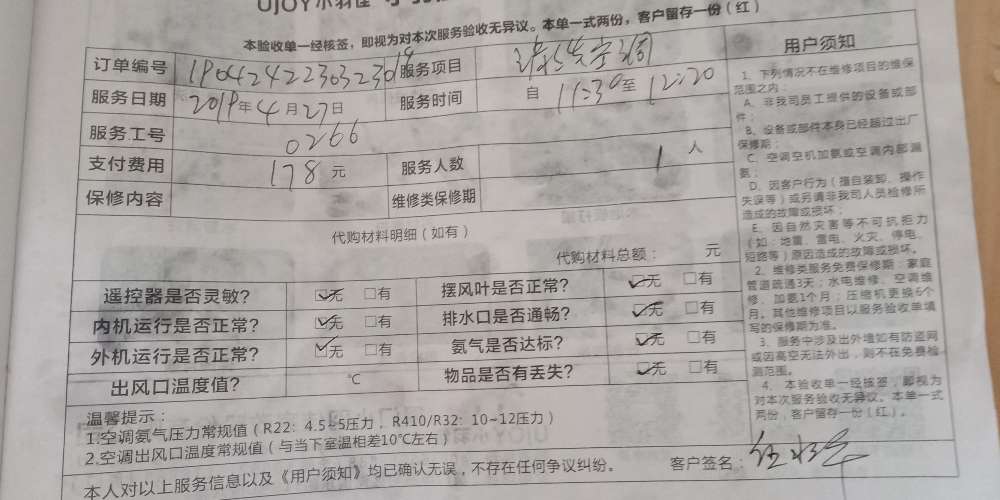 UJOY小羽佳
本验收单一经核签，即视为对本次服务验收无异议。本单一式两份，客户留存一份（红）
订单编号 19042422303230
服务项目 清洗空调
服务日期 2019年4月27日
服务时间 自 11:30至 12:20
服务工号 0266
支付费用 178 元
服务人数 1 人
保修内容
维修类保修期
代购材料明细（如有）
代购材料总额： 元
遥控器是否灵敏？ ☑无 □有
摆风叶是否正常？ ☑无 □有
内机运行是否正常？ ☑无 □有
排水口是否通畅？ ☑无 □有
外机运行是否正常？ ☑无 □有
氨气是否达标？ ☑无 □有
出风口温度值？ ℃
物品是否有丢失？ ☑无 □有
温馨提示：
1.空调氨气压力常规值（R22：4.5~5压力，R410/R32：10~12压力）
2.空调出风口温度常规值（与当下室温相差10℃左右）
本人对以上服务信息以及《用户须知》均已确认无误，不存在任何争议纠纷。
客户签名：
用户须知
1、下列情况不在维修项目的维保
范围之内：
A、非我司员工提供的设备或部
件；
B、设备或部件本身已经超过出厂
保修期；
C、空调空机加氨或空调内部漏
氨；
D、因客户行为（擅自装卸、操作
失误等）或另请非我司人员检修所
造成的故障或损坏；
E、因自然灾害等不可抗拒力
（如：地震、雷电、火灾、停电、
短路等）原因造成的故障或损坏。
2、维修类服务免费保修期：家庭
管道疏通3天；水电维修、空调维
修、加氨1个月；压缩机更换6个
月。其他维修项目以服务验收单填
写的保修期为准。
3、服务中涉及出外墙如有防盗网
或因高空无法外出，则不在免费检
测范围。
4、本验收单一经核签，即视为
对本次服务验收无异议。本单一式
两份，客户留存一份（红）。